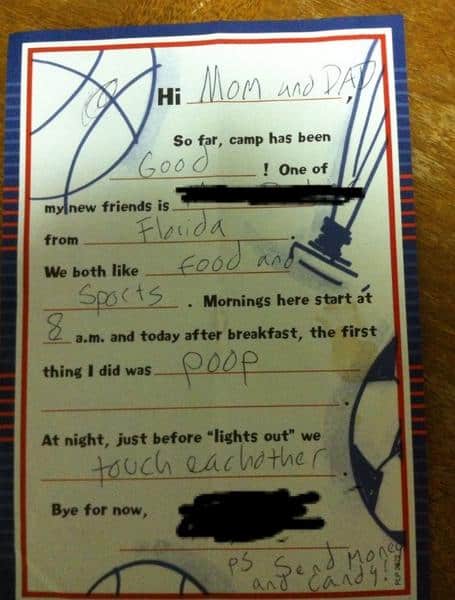 Hi Mom and DAD,
So far, camp has been
Good ! One of
my new friends is
from Florida .
We both like food and
Sports . Mornings here start at
8 a.m. and today after breakfast, the first
thing I did was poop
.
At night, just before "lights out" we
touch eachother .
Bye for now,
PS Send Money
and Candy!